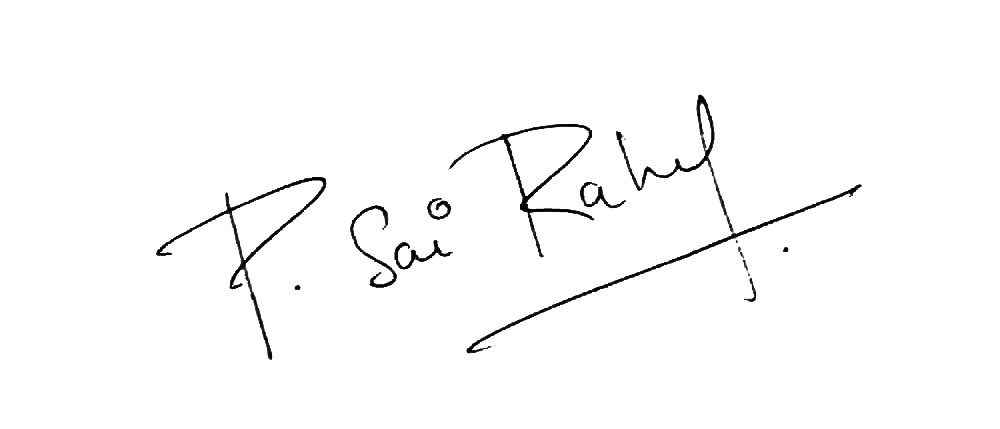 P. Sai Rahul